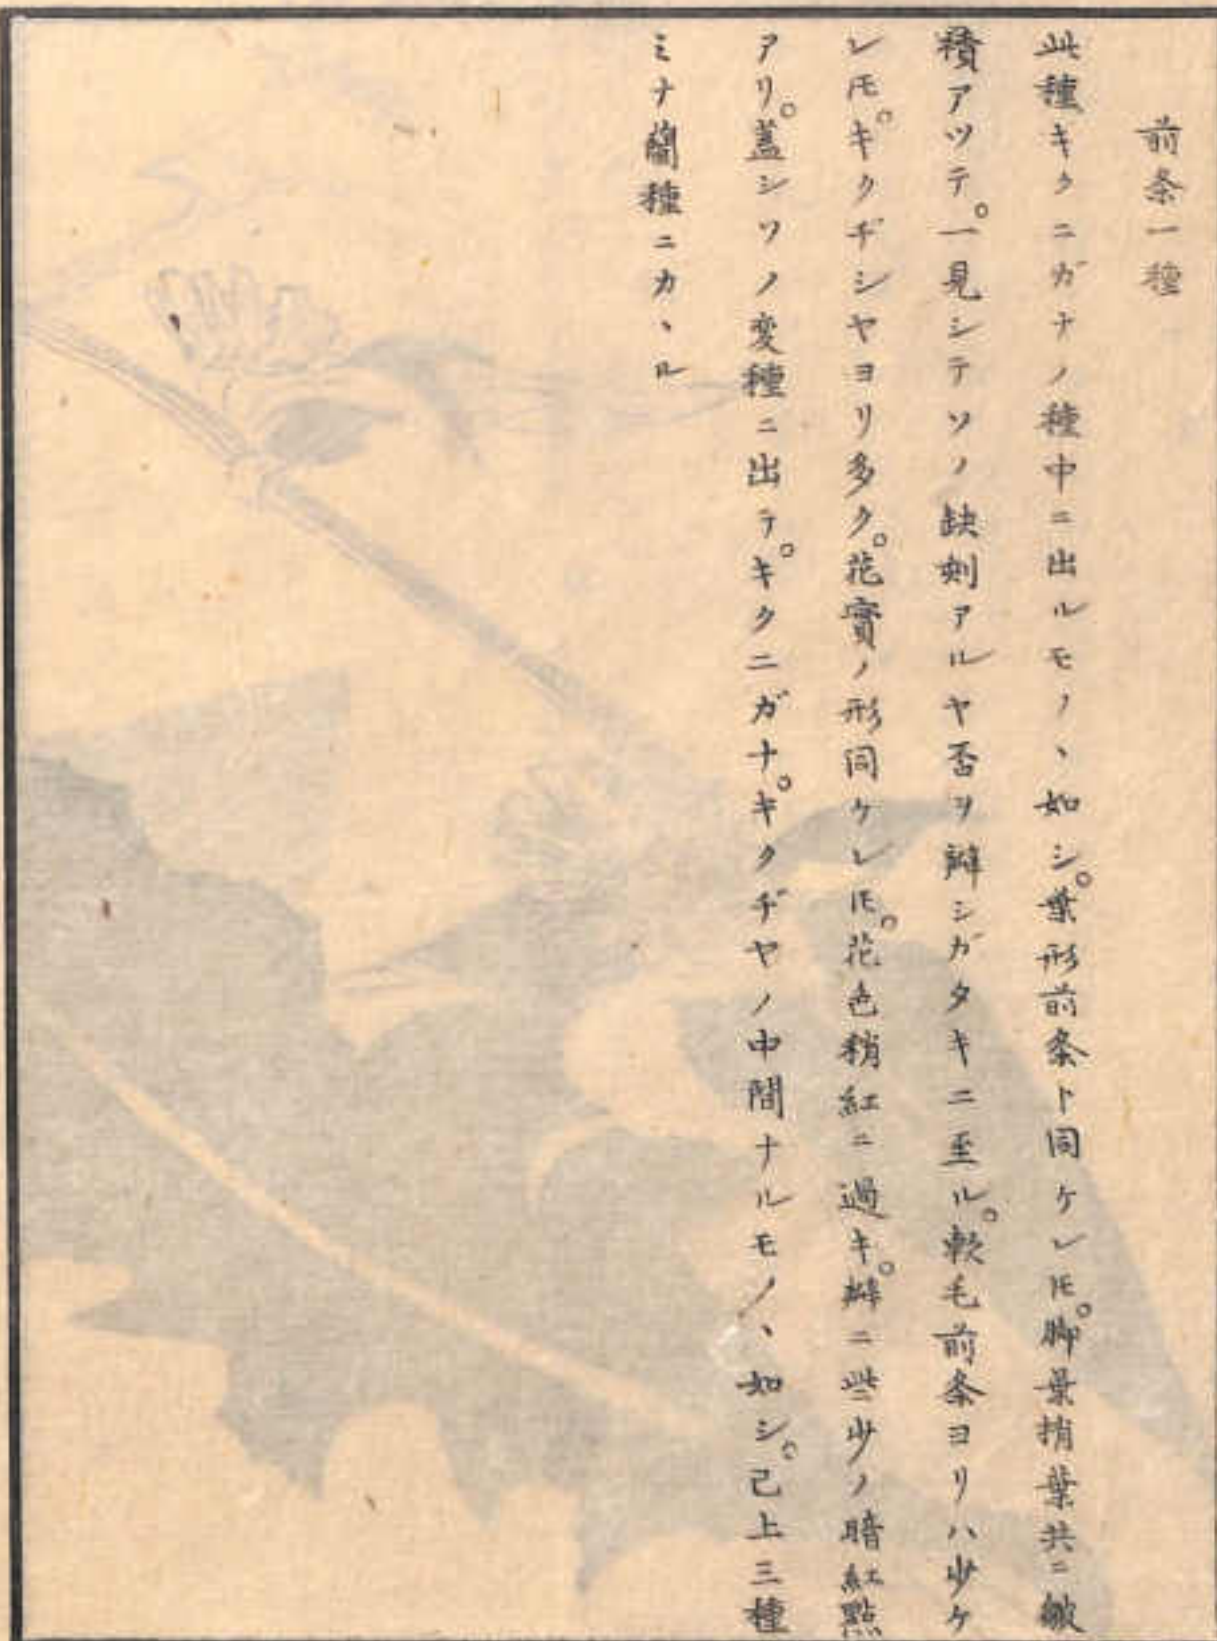 前条一種
此種キクニガナノ種中ニ出ルモノヽ如シ。葉形前条ト同ケレ𪜈。脚葉梢葉共ニ皺
積アツテ。一見シテソノ缺刻アルヤ否ヲ辨シガタキニ至ル。軟毛前条ヨリハ少ケ
レ𪜈。キクヂシヤヨリ多ク。花實ノ形同ケレ𪜈。花色稍紅ニ過キ。瓣ニ些少ノ暗紅點
アリ。蓋シソノ変種ニ出テ。キクニガナ。キクヂヤノ中間ナルモノヽ如シ。己上三種
ミナ蘭種ニカヽル